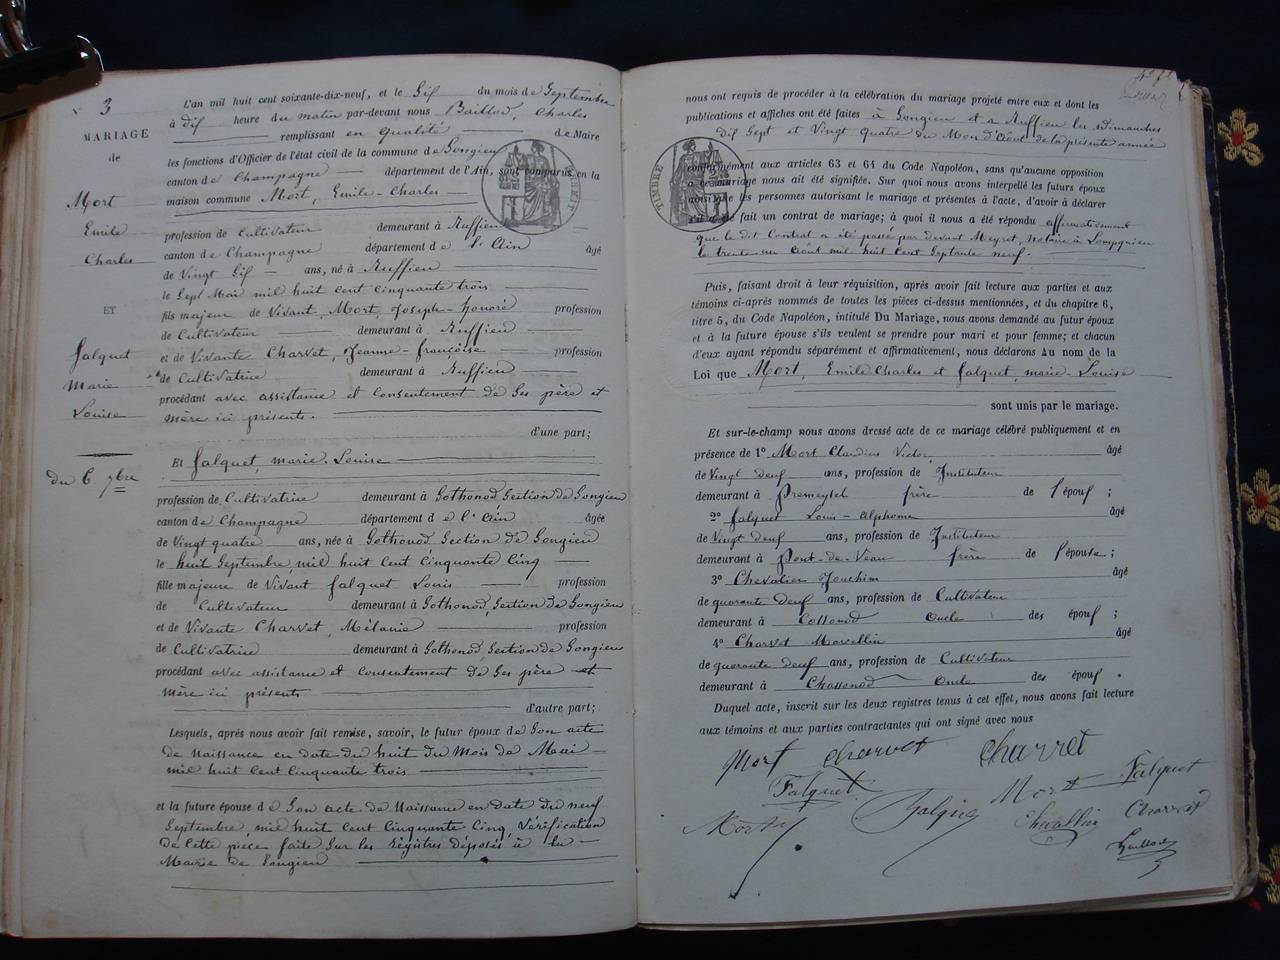 N° 3
MARIAGE
de
Mort
Emile
Charles
ET
Falquet
Marie
Louise
du 6. 7bre
L'an mil huit cent soixante-dix-neuf, et le Six du mois de Septembre
à dix heure du matin par-devant nous Baillod, Charles
remplissant en qualité de Maire
les fonctions d'Officier de l'état civil de la commune de Songieu
canton de Champagne département de l'Ain, sont comparus en la
maison commune Mort, Emile-Charles
profession de Cultivateur demeurant à Ruffieu
canton de Champagne département de l'Ain âgé
de Vingt Six ans, né à Ruffieu
le Sept Mai mil huit cent cinquante trois
fils majeur de Vivant Mort, Joseph-honoré profession
de Cultivateur demeurant à Ruffieu
et de Vivante Charvet, Jeanne-françoise profession
de Cultivatrice demeurant à Ruffieu
procédant avec assistance et Consentement de Ses père et
mère ici présents.
d'une part;
Et Falquet, marie-Louise
profession de Cultivatrice demeurant à Gothonod, Section de Songieu
canton de Champagne département de l'Ain âgée
de Vingt quatre ans, née à Gothonod Section de Songieu
le huit Septembre, mil huit Cent Cinquante Cinq
fille majeure de Vivant falquet Louis profession
de Cultivateur demeurant à Gothonod, Section de Songieu
et de Vivante Charvet, Mélanie profession
de Cultivatrice demeurant à Gothonod Section de Songieu
procédant avec assistance et Consentement de Ses père et
mère ici présents
d'autre part;
Lesquels, après nous avoir fait remise, savoir, le futur époux de Son acte
de Naissance en date du huit du Mois de Mai
mil huit Cent Cinquante trois
et la future épouse de Son acte de Naissance en date du neuf
Septembre, mil huit Cent Cinquante Cinq, Vérification
de Cette pièce faite Sur les registres déposés à la
Mairie de Songieu
nous ont requis de procéder à la célébration du mariage projeté entre eux et dont les
publications et affiches ont été faites à Songieu et a Ruffieu les dimanches
Dix Sept et Vingt quatre du Mois d'Août de la présente année
conformément aux articles 63 et 64 du Code Napoléon, sans qu'aucune opposition
à ce mariage nous ait été signifiée. Sur quoi nous avons interpellé les futurs époux
ainsi que les personnes autorisant le mariage et présentes à l'acte, d'avoir à déclarer
s'il a été fait un contrat de mariage; à quoi il nous a été répondu affirmativement
que le dit Contrat a été passé par devant Meyret, notaire à Lompnieu
le trente-un Août mil huit Cent Septante neuf.
TIMBRE
Puis, faisant droit à leur réquisition, après avoir fait lecture aux parties et aux
témoins ci-après nommés de toutes les pièces ci-dessus mentionnées, et du chapitre 6,
titre 5, du Code Napoléon, intitulé Du Mariage, nous avons demandé au futur époux
et à la future épouse s'ils veulent se prendre pour mari et pour femme; et chacun
d'eux ayant répondu séparément et affirmativement, nous déclarons au nom de la
Loi que Mort, Emile Charles et Falquet, marie-Louise
sont unis par le mariage.
Et sur-le-champ nous avons dressé acte de ce mariage célébré publiquement et en
présence de 1° Mort Claudius Victor, âgé
de Vingt Neuf ans, profession de Instituteur
demeurant à Premeyzel frère de l'époux;
2° Falquet Louis-alphonse âgé
de Vingt Neuf ans, profession de Instituteur
demeurant à Pont-de-Veau frère de l'épouse;
3° Chevalier Jouchim âgé
de quarante Neuf ans, profession de Cultivateur
demeurant à Cossonod Oncle des époux;
4° Charvet Marcellin âgé
de quarante Neuf ans, profession de Cultivateur
demeurant à Chassonod Oncle des époux.
Duquel acte, inscrit sur les deux registres tenus à cet effet, nous avons fait lecture
aux témoins et aux parties contractantes qui ont signé avec nous
Mort Charvet Charvet
Falquet Mort Falquet
Mort Falquet Chevallier Charvet
Baillod